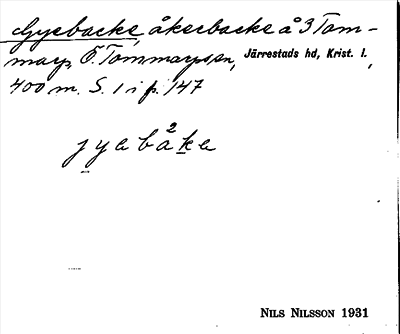 Gyebacke, åkerbacke å 3 Tom-
marp, Ö. Tommarps sn, Järrestads hd, Krist. l.
400 m. S. 1 i p. 147
jyebåke
2
NILS NILSSON 1931